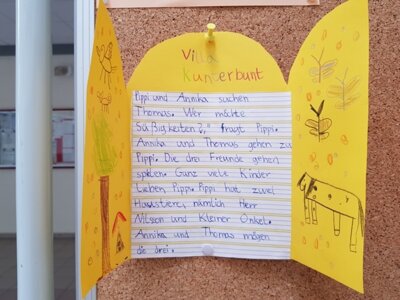 Villa
Kunterbunt
Pippi und Annika suchen
Thomas. Wer möchte
Süßigkeiten?," fragt Pippi.
Annika und Thomas gehen zu
Pippi. Die dro Freunde gehen
spielen. Ganz viele Kinder
lieben Pippi. Pippi hat zwei
Haustiere, nämlich Herr
Nilsson und Kleiner Onkel.
Annika und Thomas mögen
die drei.